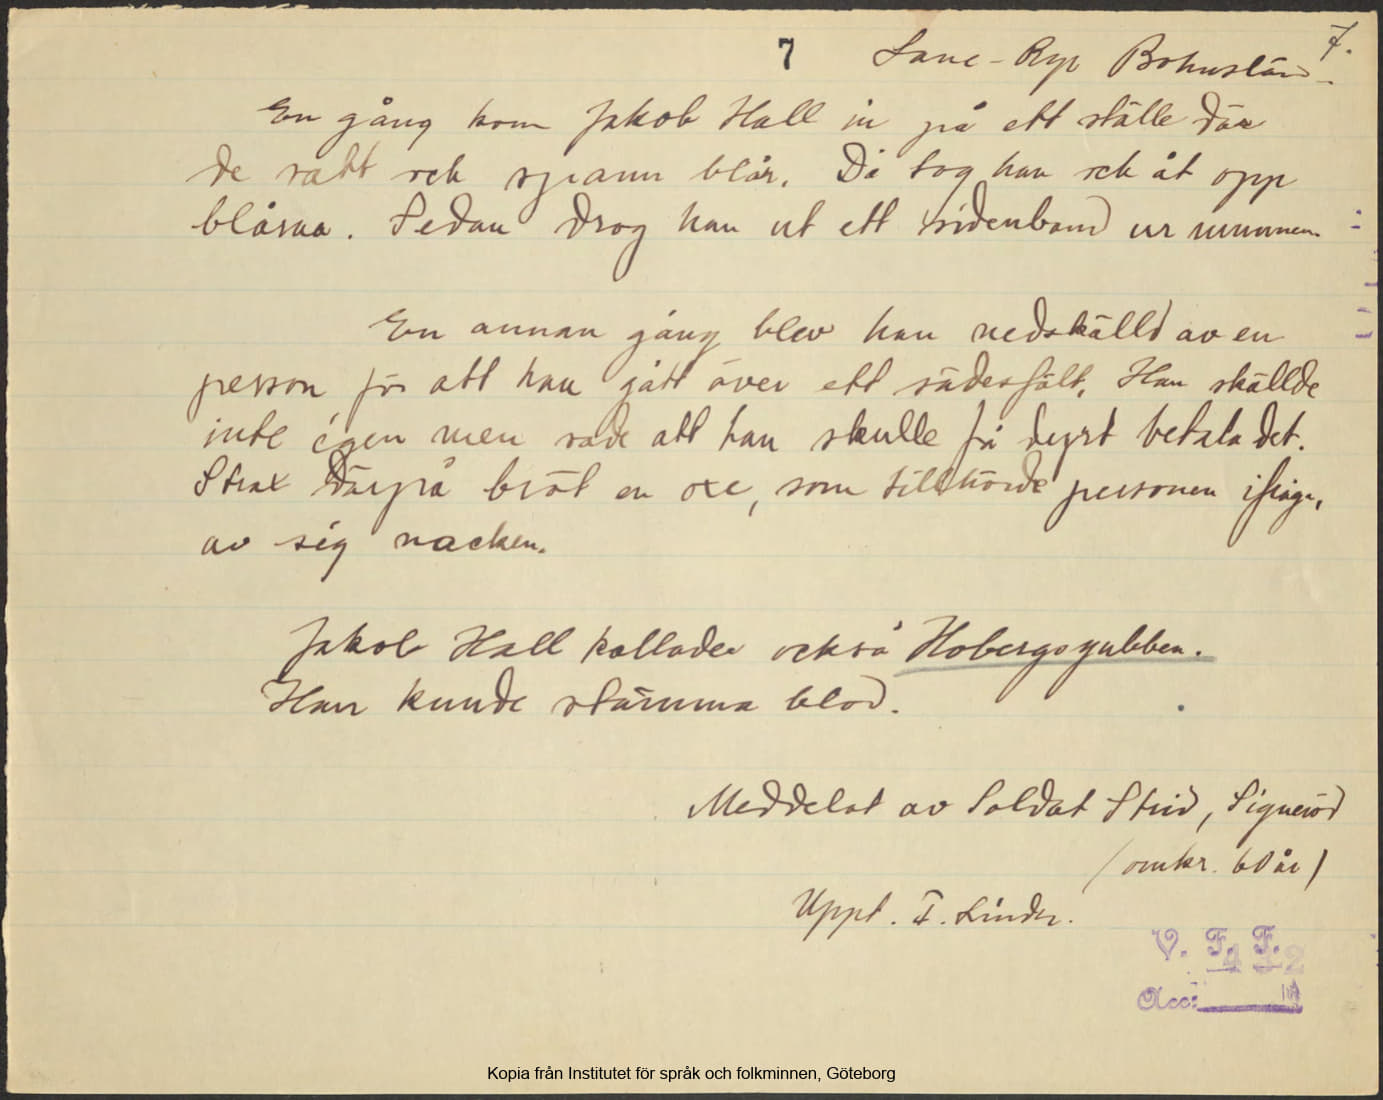 7 Lane-Ryr Bohuslän 7.
En gång kom Jakob Hall in på ett ställe där
de satt och spann blår. Då tog han och åt opp
blårna. Sedan drog han ut ett sidenband ur munnen.
En annan gång blev han nedskälld av en
person för att han gått över ett sädesfält. Han skällde
inte igen men sade att han skulle få dyrt betala det.
Strax därpå bröt en oxe, som tillhörde personen ifråga,
av sig nacken.
Jakob Hall kallades också Hobergsgubben.
Han kunde stämma blod.
Meddelat av Soldat Strid, Signeröd
(omkr. 60 år)
Uppt. I. Linder.
V. F. F.
Acc:
Kopia från Institutet för språk och folkminnen, Göteborg